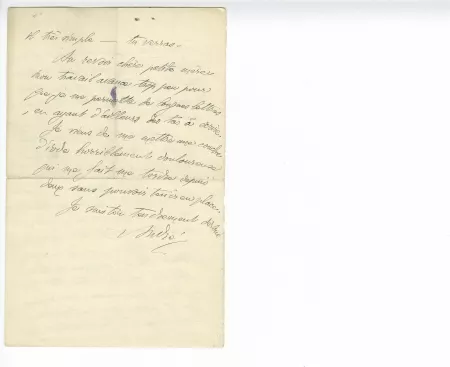 et très simple — tu verras.
Au revoir chère petite mère
mon travail avance trop peu pour
que je me permette de longues lettres
, en ayant d'ailleurs des tas à écrire.
Je viens de me mettre une couche
d'iode horriblement douloureuse
qui me fait me tordre depuis
deux sans pouvoir tenir en place.
Je suis ton tendrement
André